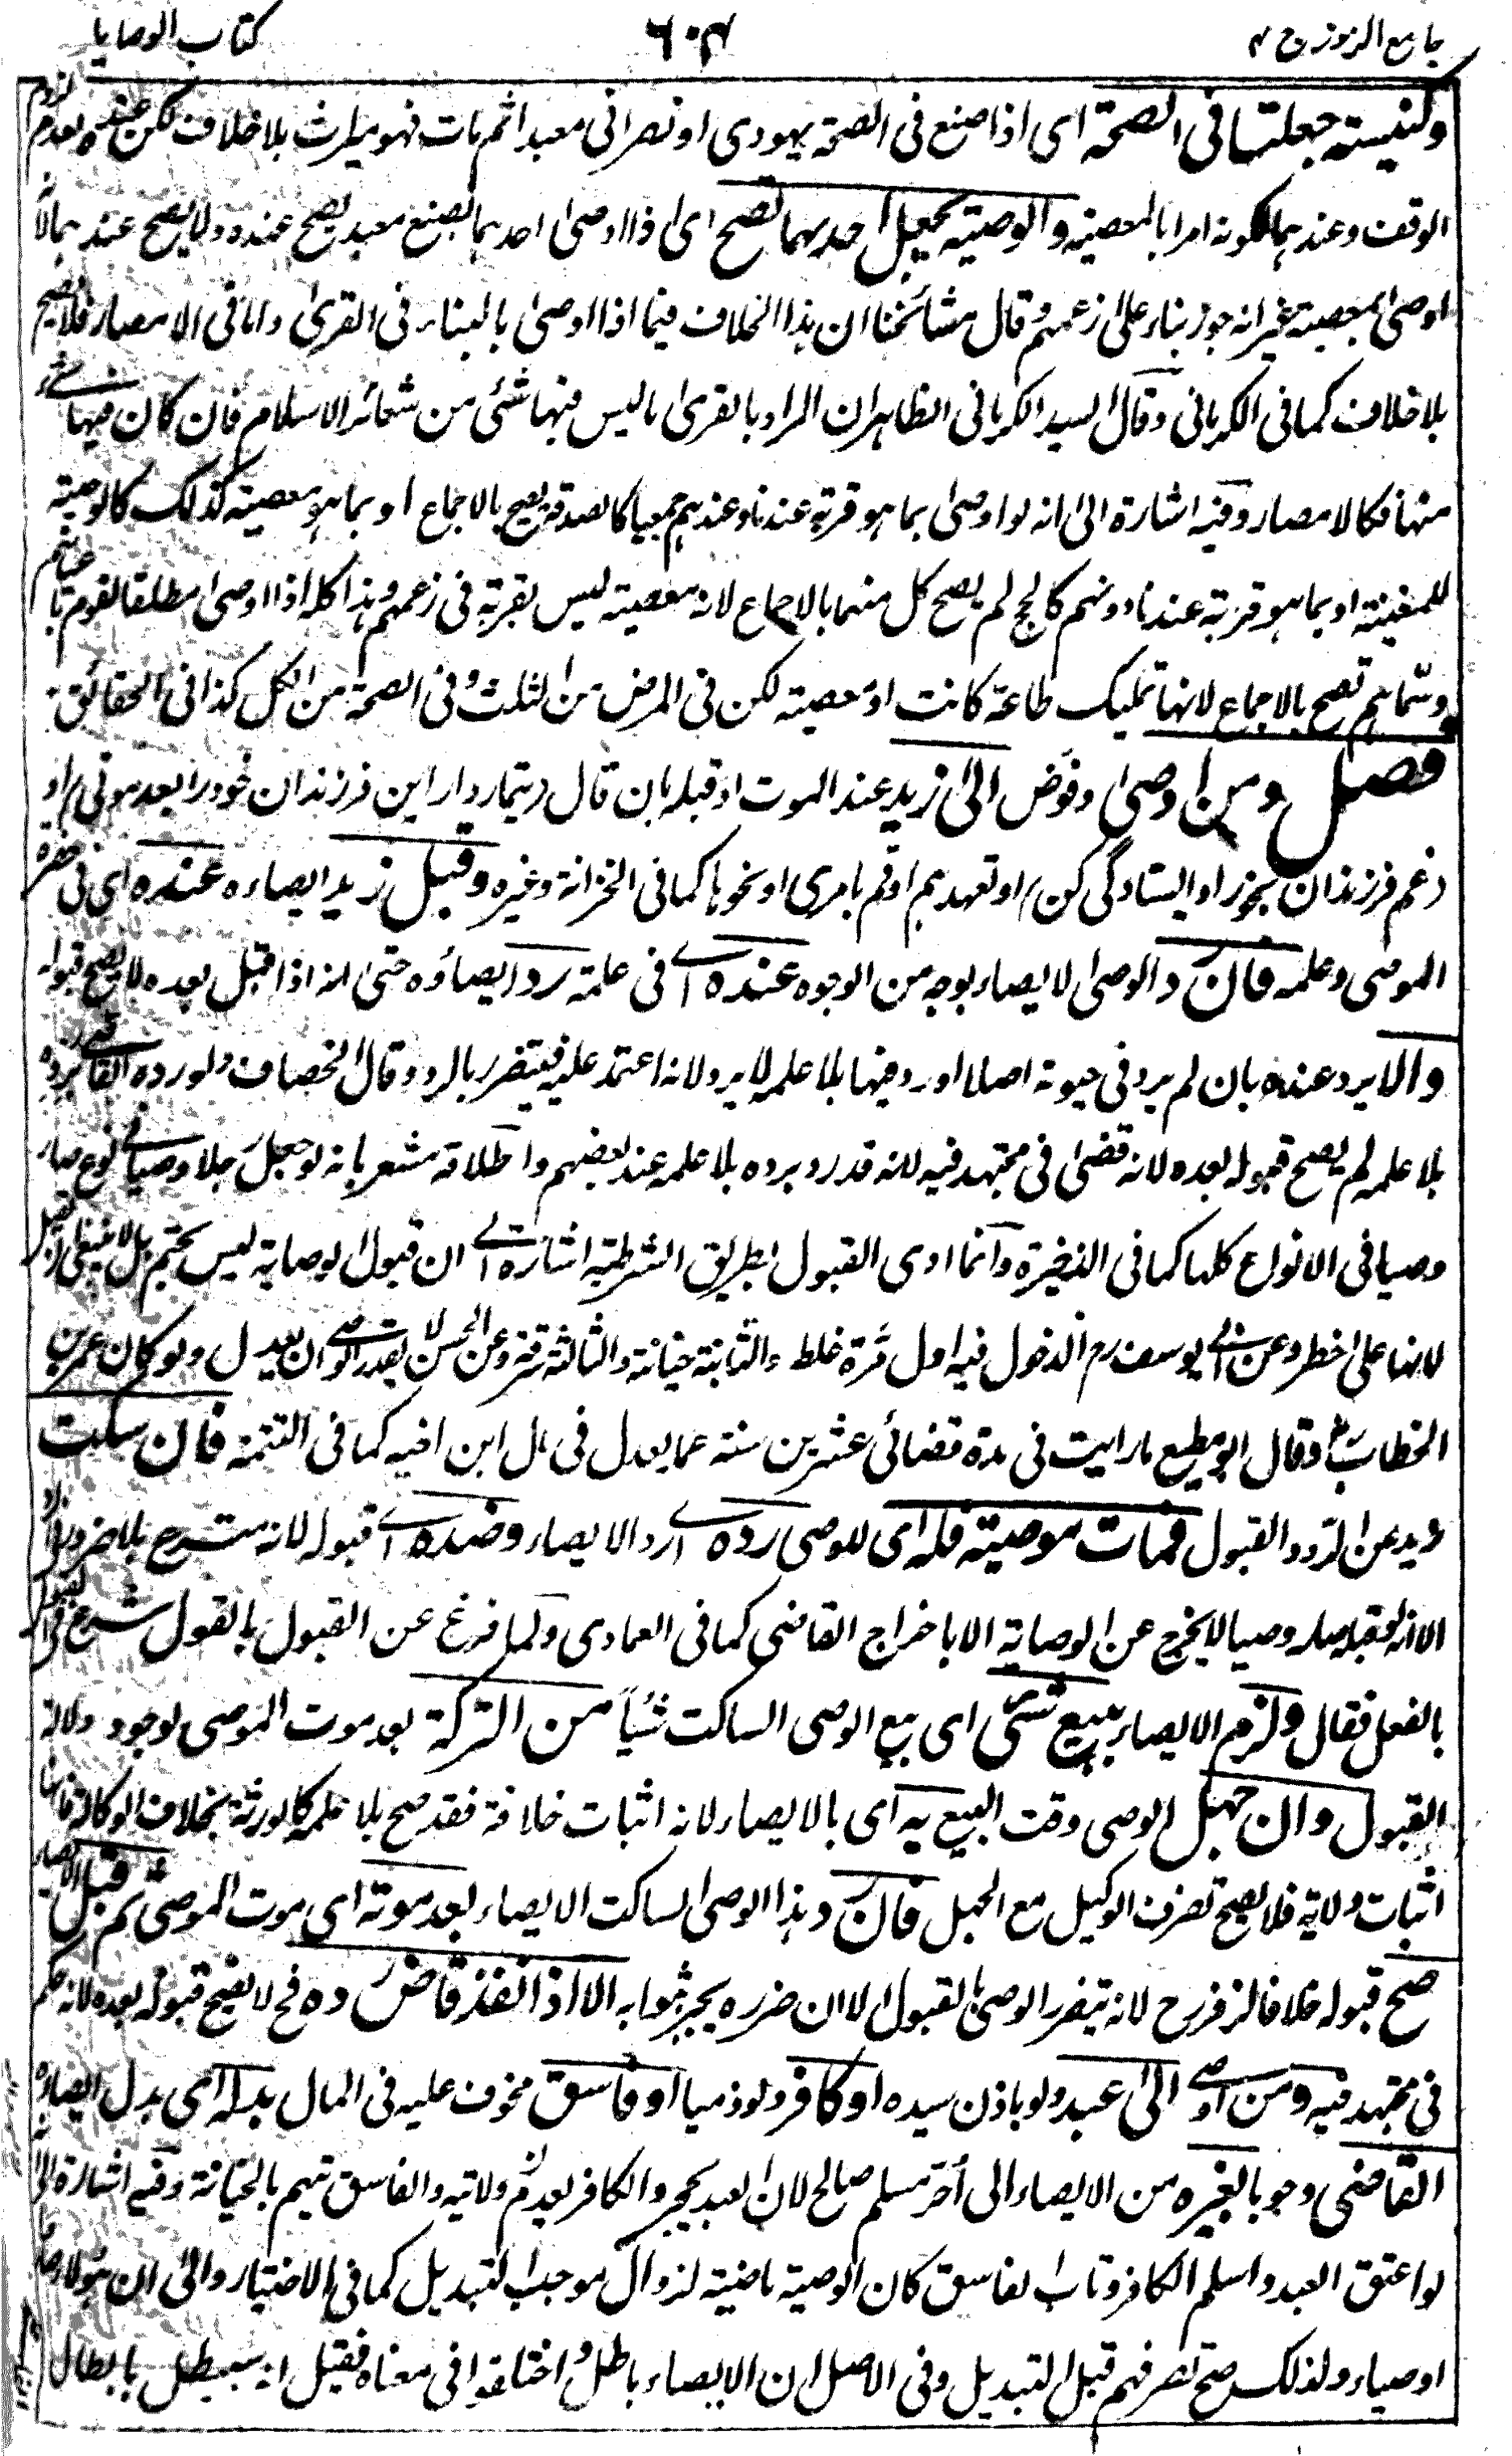 جامع الرموز ج ٢ ٦٠٤ كتاب الوصايا
وكنيسة جعلتا فى الصحة اى اذا صنع فى الصحة يهودى او نصرانى معبدا ثم مات فهو ميراث بلا خلاف لكن عنده لعدم لزوم
الوقف وعندهما لكونه امرا بالمعصية والوصية بجعل احدهما تصح اى اذا اوصى احدهما بصنع معبد يصح عنده ولا يصح عندهما لانه
اوصى بمعصية غير انه جوز بناء على زعمهم وقال مشائخنا ان هذا الخلاف فيما اذا اوصى بالبناء فى القرى واما فى الامصار فلا يصح
بلا خلاف كما فى الكرمانى وقال السيد الكرمانى الظاهر ان المراد بالقرى ما ليس فيها شئ من شعائر الاسلام فان كان فيها شئ
منها فكالامصار وفيه اشارة الى انه لو اوصى بما هو قربة عندنا وعندهم جميعا كالصدقة يصح بالاجماع او بما هو معصية كذلك كالوصية
للمغنية او بما هو قربة عندنا دونهم كالحج لم يصح كل منهما بالاجماع لانه معصية ليس بقربة فى زعمهم وهذا كله اذا اوصى مطلقا لقوم باعيانهم
وسماهم تصح بالاجماع لانها تمليك طاعة كانت او معصية لكن فى المرض من الثلث وفى الصحة من الكل كذا فى الحقائق
فصل ومن اوصى وفوض الى زيد عند الموت او قبله بان قال تيمار دار اين فرزندان خودرا بعد موتى او
غم فرزندان بخور او ايستادگى كن او تعهدهم او قم بامرى او نحوها كما فى الخزانة وغيره وقبل زيد ايصاءه عنده اى فى حضرة
الموصى وعلمه فان رد الوصى الايصاء بوجه من الوجوه عنده اى فى علمه رد ايصاؤه حتى انه اذا قبل بعده لا يصح قبوله
والا يرد عنده بان لم يرد فى حيوته اصلا او رد فيها بلا علمه لا يرد لانه اعتمد عليه فيتضرر بالرد وقال الخصاف ولو رده القاضى برده
بلا علمه لم يصح قبوله بعده لانه قضى فى مجتهد فيه لانه قد رد برده بلا علمه عند بعضهم واطلاقه مشعر بانه لو جعل رجلا وصيا فى نوع صار
وصيا فى الانواع كلها كما فى الذخيرة وانما ادى القبول بطريق الشرطية اشارة الى ان قبول الوصاية ليس بحتم بل لا ينبغى ان تقبل
لانها على خطر وعن ابى يوسف رح الدخول فيه اول مرة غلط والثانية خيانة والثالثة سرقة وعن الحسن لا يقدر الوصى ان يعدل ولو كان عمر بن
الخطاب رض وقال ابو مطيع ما رايت فى مدة قضائى عشرين سنة عما يعدل فى مال ابن اخيه كما فى التتمة فان سكت
زيد عن الرد والقبول فمات موصيه فله اى للوصى رده اى رد الايصاء وضده اى قبوله لانه متبرع بلا ضرورة
الا انه لو قبله صار وصيا لا يخرج عن الوصاية الا باخراج القاضى كما فى العمادى ولما فرغ عن القبول بالقول شرع فى القبول
بالفعل فقال ولزم الايصاء ببيع شئ اى بيع الوصى الساكت شيئا من التركة بعد موت الموصى لوجود دلالة
القبول وان جهل الوصى وقت البيع به اى بالايصاء لانه اثبات خلافة فقد صح بلا علمه كالوراثة بخلاف الوكالة فانها
اثبات ولاية فلا يصح تصرف الوكيل مع الجهل فان رد هذا الوصى الساكت الايصاء بعد موته اى موت الموصى ثم قبل الايصاء
صح قبوله خلافا لزفر رح لانه يتضرر الوصى بالقبول الا ان ضرره يجبر بثوابه الا اذا نفذ قاض رده فح لا يصح قبوله بعده لانه حكم
فى مجتهد فيه ومن اوصى الى عبد ولو باذن سيده او كافر ولو ذميا او فاسق مخوف عليه فى المال بدله اى بدل ايصاءه
القاضى وجوبا بغيره من الايصاء الى آخر مسلم صالح لان العبد بحجر والكافر بعدم ولايته والفاسق يتهم بالخيانة وفيه اشارة الى انه
لو اعتق العبد واسلم الكافر وتاب الفاسق كان الوصية ماضية لزوال موجب التبديل كما فى الاختيار والى ان هؤلاء صاروا
اوصياء ولذلك صح تصرفهم قبل التبديل وفى الاصل ان الايصاء باطل واختلفوا فى معناه فقيل انه سيبطل بابطال